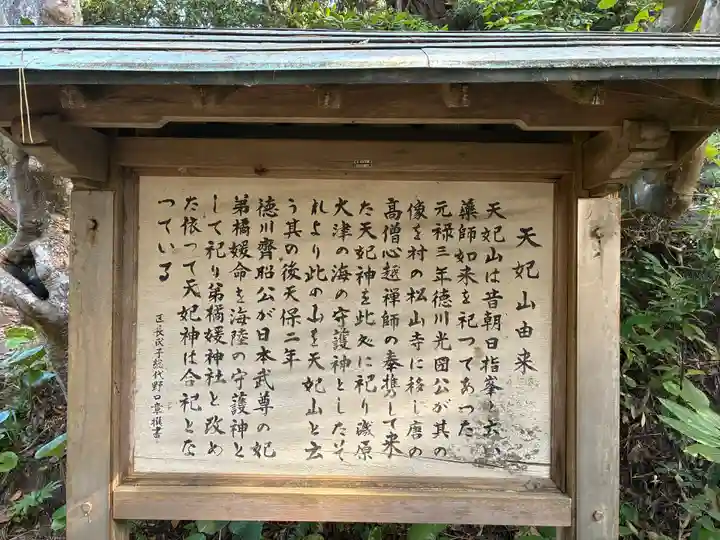 天妃山由来
天妃山は昔朝日指峯と云い
薬師如来を祀つてあつた
元禄三年徳川光圀公が其の
像を村の松山寺に移し唐の
高僧心越禅師の奉携して来
た天妃神を此处に祀り磯原
大津の海の守護神としたそ
れより此の山を天妃山と云
う其の後天保二年
徳川齊昭公が日本武尊の妃
弟橘媛命を海陸の守護神と
して祀り弟橘媛神社と改め
た依って天妃神は合祀とな
つている
区長氏子総代野口章